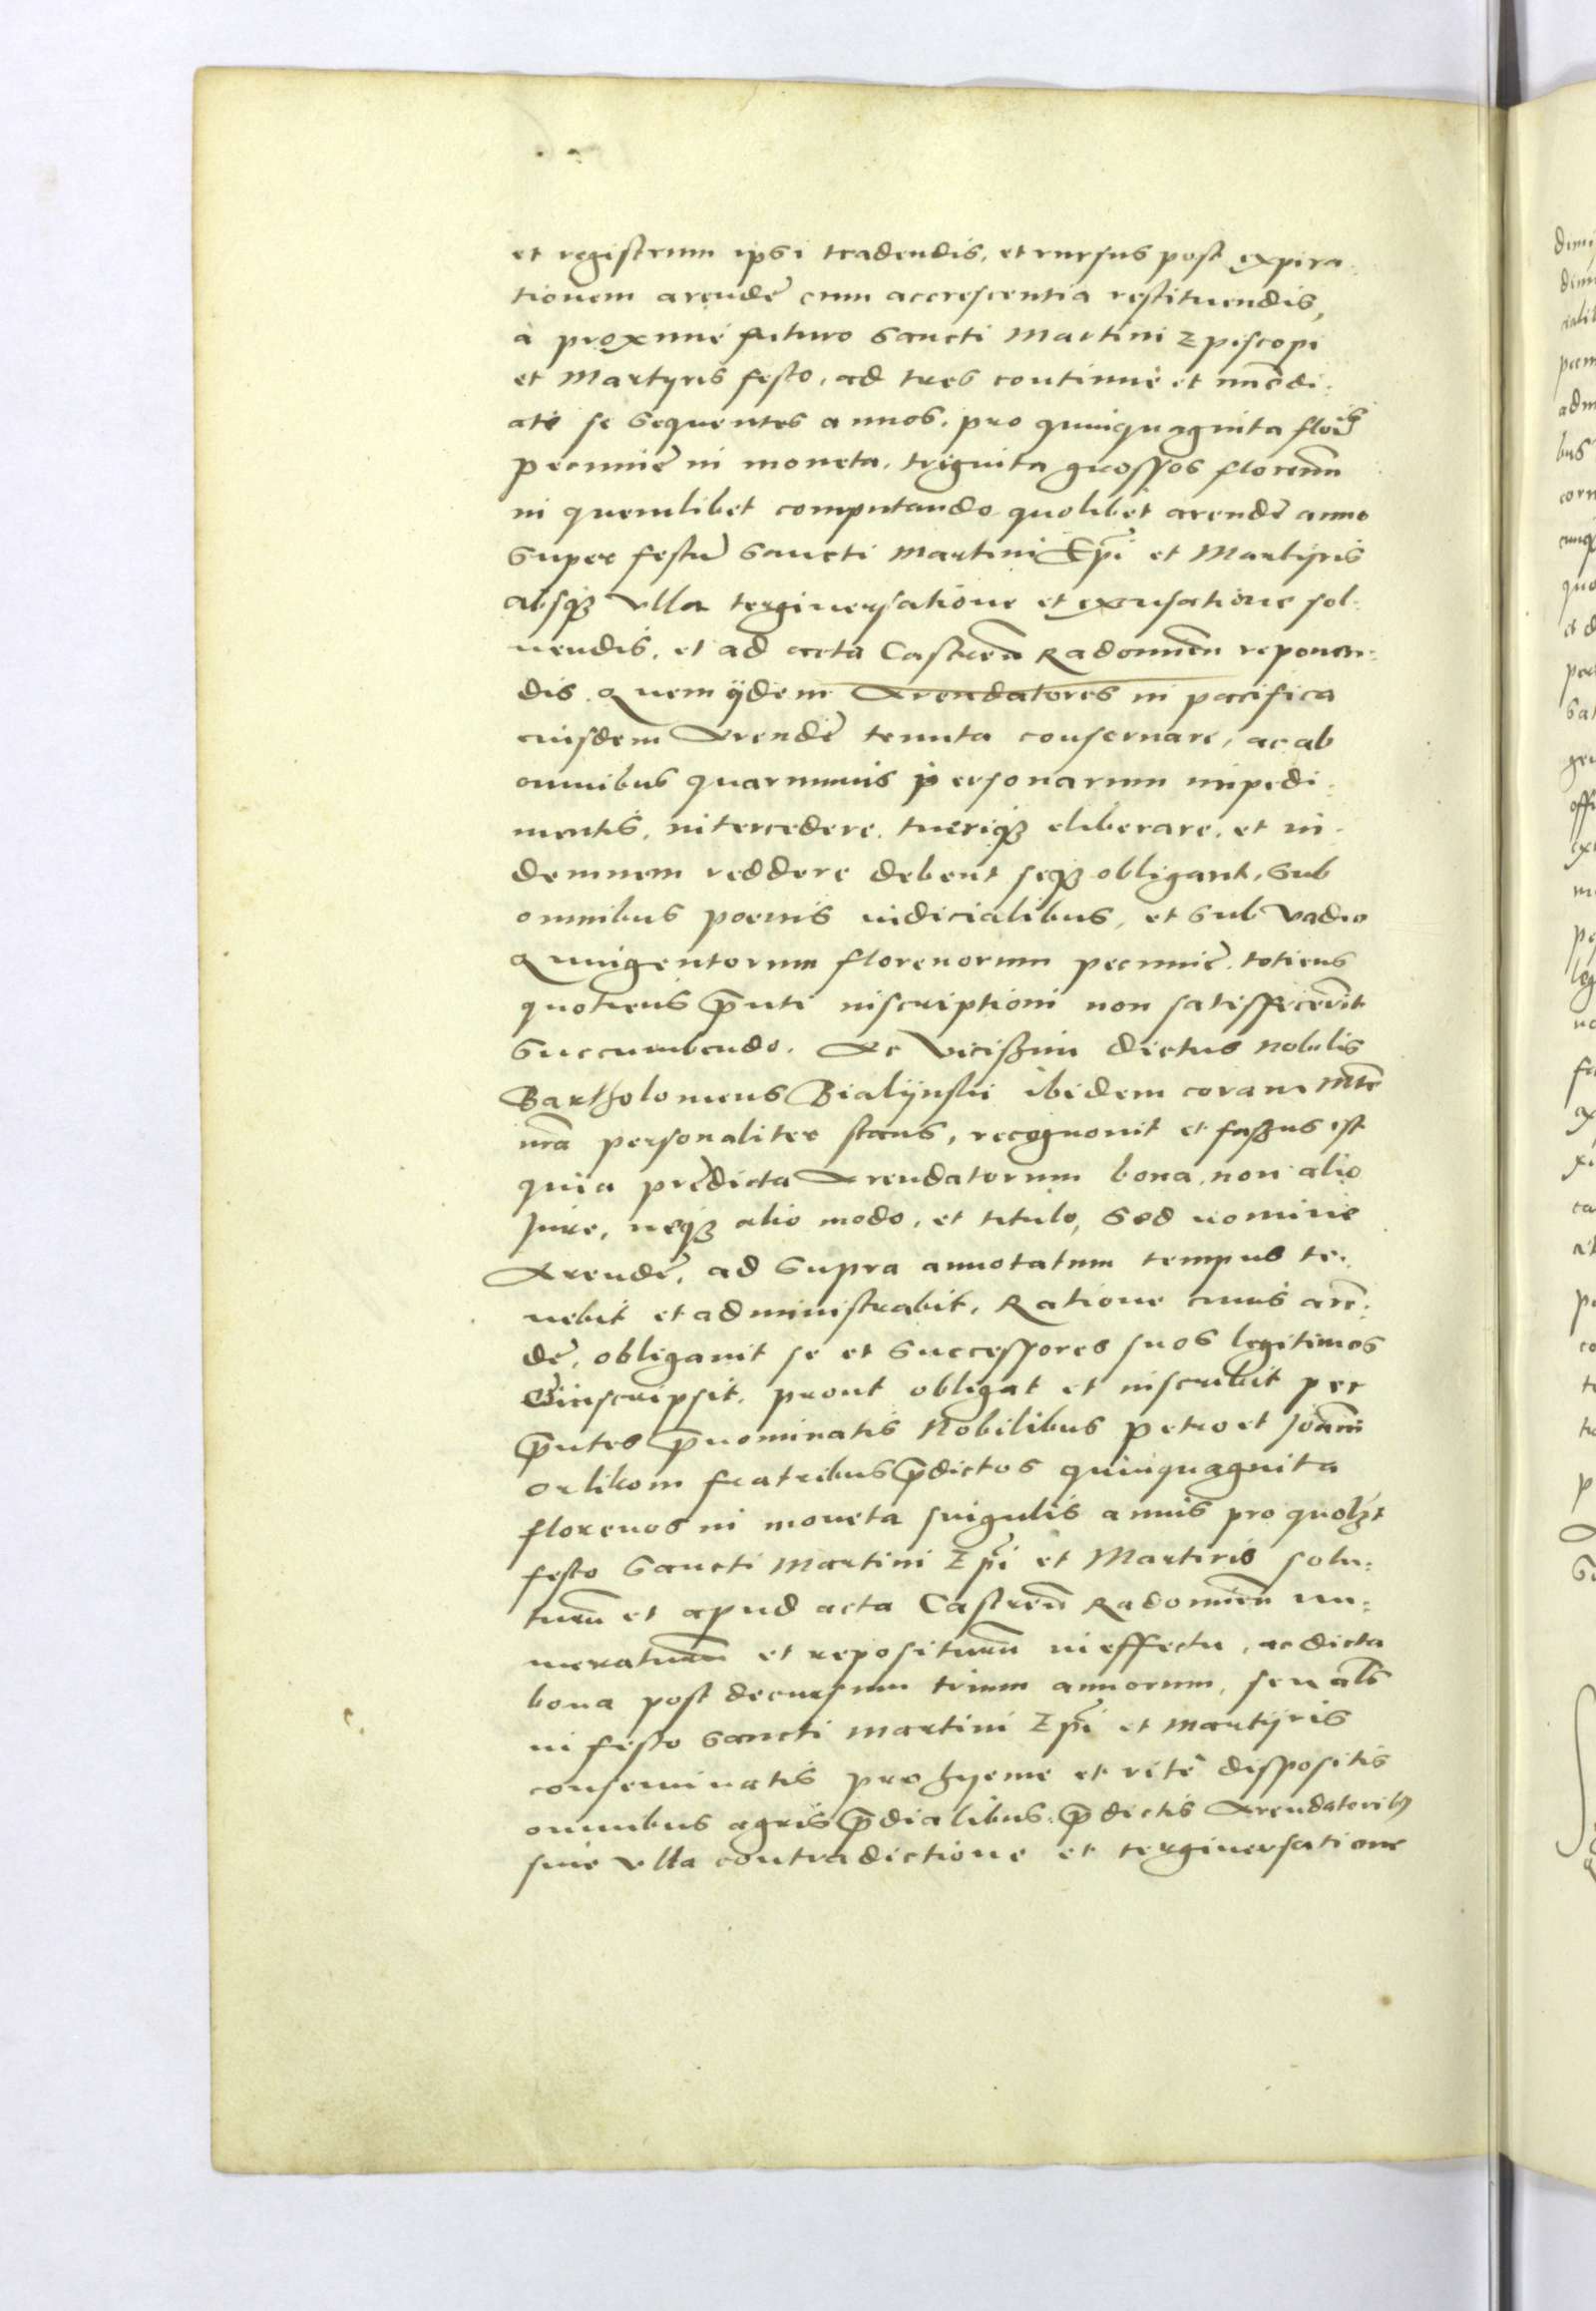 et registrum ipsi tradendis, et rursus post expira:
tionem arendę cum accrescentia restituendis,
à proxime futuro Sancti Martini Episcopi
et Martyris festo, ad tres continué et im̄edi:
até se sequentes annos, pro quinquaginta
pecunię in moneta, triginta grossos florenū
in quemlibet computando quolibet arendę anno
super festū Sancti Martini Ep̄i et Martyris
absq3 vlla tergiuersatione et excusatione sol:
uendis, et ad acta Castren̄ Radomien̄ reponen:
dis. Quem ijdem Arendatores in pacifica
eiusdem Arendę tenuta conseruare, ac ab
omnibus quarumuis personarum impedi:
mentis, intercedere, tueriq3 eliberare, et in:
demnem reddere debent seq3 obligant, sub
omnibus poenis iudicialibus, et sub vadio
Quingentorum florenorum pecunię, totiens
quotiens p̄nti inscriptioni non satisfecerit
succumbendo. Ac vicißim dictus nobilis
Bartholomeus Bialijnski ibidem coram Mte
nr̄a personaliter stans, recognouit et faßus est
quia prędicta Arendatorum bona, non alio
Jure, neq3 alio modo, et titulo, sed nomine
Arendę, ad supra annotatum tempus te:
nebit et administrabit, Ratione cuius arē:
dę, obligauit se et successores suos legitimos
inscripsit, prout obligat et inscribit per
p̄ntes p̄nominatis Nobilibus Petro et Joanni
Orlikom fratribus p̄dictos quinquaginta
florenos in moneta singulis annis pro quol3t
festo Sancti Martini Ep̄i et Martiris solu:
turū et apud acta Castren̄ Radomien̄ nu:
meraturū et repositurū in effectu, ac dicta
bona post decursum trium annorum, seu al̄s
in festo Sancti Martini Ep̄i et Martyris
conseminatis pro hyeme et rité dispositis
omnibus agris p̄dialibus, p̄dictis Arendatorib9
sine vlla contradictione et tergiuersatione